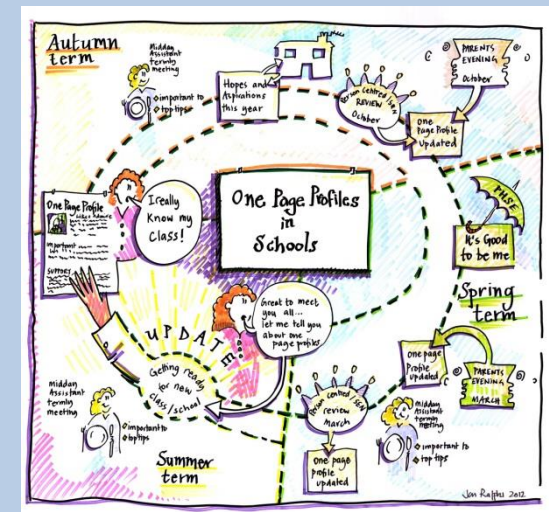 Autumn
term
Midday
Assistant
termly
meeting
important to
top tips
Hopes and
Aspirations
this year
Person Centred/SEN
REVIEW
October
PARENTS
EVENING
October
one
Page Profile
Updated
One Page Profile
important
SUPPORT
I really
Know my
Class!
One Page Profiles
in
Schools
PHSE
It's Good
to be me
Spring
term
Great to meet
you all...
let me tell you
about one
page profiles
UPDATE
Getting ready
for new
class/school
one page
Profile
updated
PARENTS
EVENING
MARCH
Midday
Assistant
termly
meeting
important to
top tips
Person Centred/SEN
review
March
Midday
Assistant
termly
meeting
important to
top tips
one page
profile
updated
Summer
term
Jon Ralphs 2012